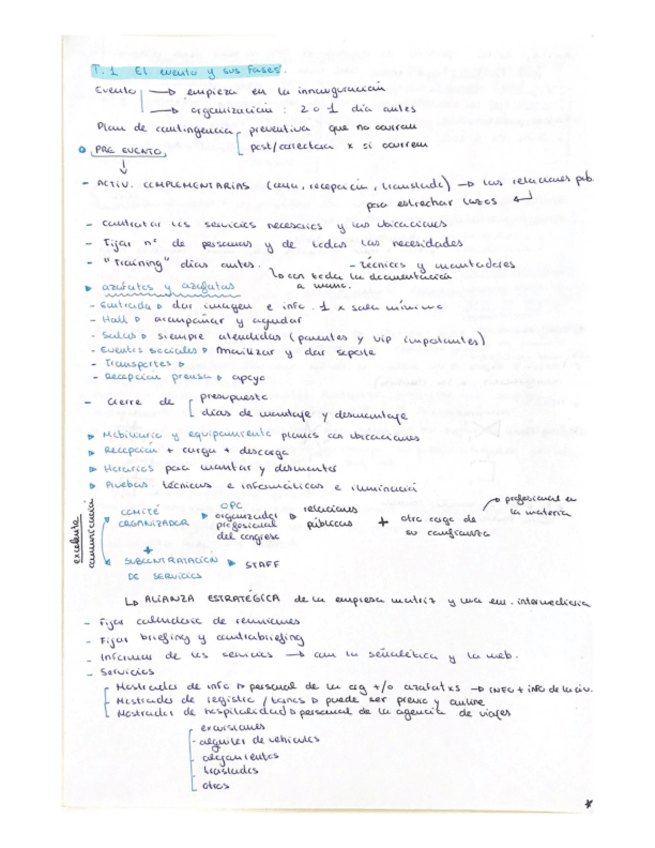 T.1 El evento y sus fases.
Evento → empieza en la innauguración
→ organización: 2 o 1 día antes
Plan de contingencia preventiva que no ocurran
post/correctora x si ocurren
PRE EVENTO
- ACTIV. COMPLEMENTARIAS (cena, recepción, translado) → las relaciones púb.
para estrechar lazos
- contratar los servicios necesarios y las ubicaciones
- Fijar nº de personas y de todas las necesidades
- "Training" días antes. - técnicos y montadores
con toda la documentación
a mano.
azafatos y azafatas
- Entrada dar imagen e info. 1 x sala mínimo
- Hall acompañar y ayudar
- Salas siempre atendidas (ponentes y vip importantes)
- Eventos sociales movilizar y dar soporte
- Transportes
- Recepción prensa apoyo
- Cierre de presupuesto
días de montaje y desmontaje
Mobiliario y equipamiento planos con ubicaciones
Recepción + carga + descarga
Horarios para montar y desmontar
Pruebas técnicas e informáticas e iluminació
excelente comunicación
COMITÉ ORGANIZADOR
OPC organizador profesional del congreso
relaciones públicas
+ otro cargo de su confianza
profesional en la materia
+
SUBCONTRATACIÓN DE SERVICIOS STAFF
ALIANZA ESTRATÉGICA de la empresa matriz y una em. intermediaria
- Fijar calendario de reuniones
- Fijar briefing y contrabriefing
- Informar de los servicios → con la señalética y la web.
- Servicios
Mostrador de info personal de la org +/o azafatxs → INFO + INFO de la civ.
Mostrador de registro / puede ser previo y online
Mostrador de hospitalidad personal de la agencia de viajes
excursiones
- alquiler de vehículos
alojamientos
traslados
otros
*